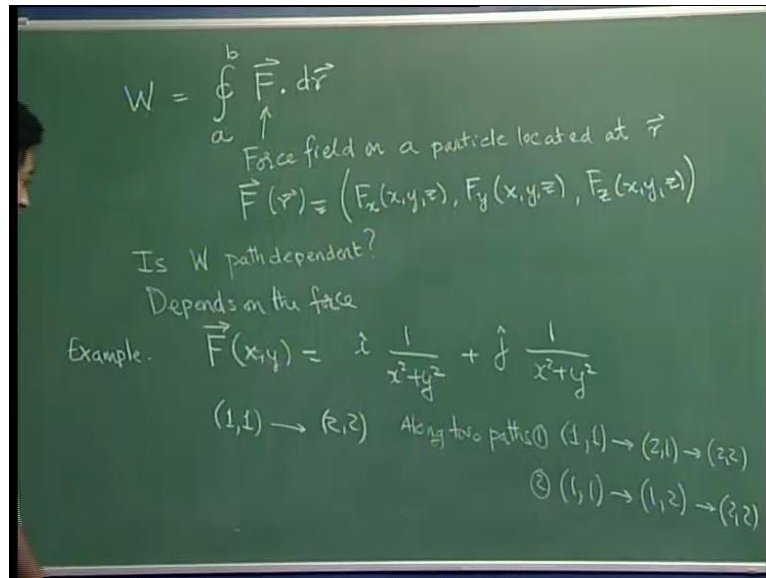 b
W = ∮ F⃗ . dr⃗
a ↑
Force field on a particle located at r⃗
F⃗ (r⃗) = (Fx(x,y,z), Fy(x,y,z), Fz(x,y,z))
Is W path dependent?
Depends on the force
Example. F⃗ (x,y) = î 1/(x²+y²) + ĵ 1/(x²+y²)
(1,1) → (2,2) Along two paths ① (1,1) → (2,1) → (2,2)
② (1,1) → (1,2) → (2,2)